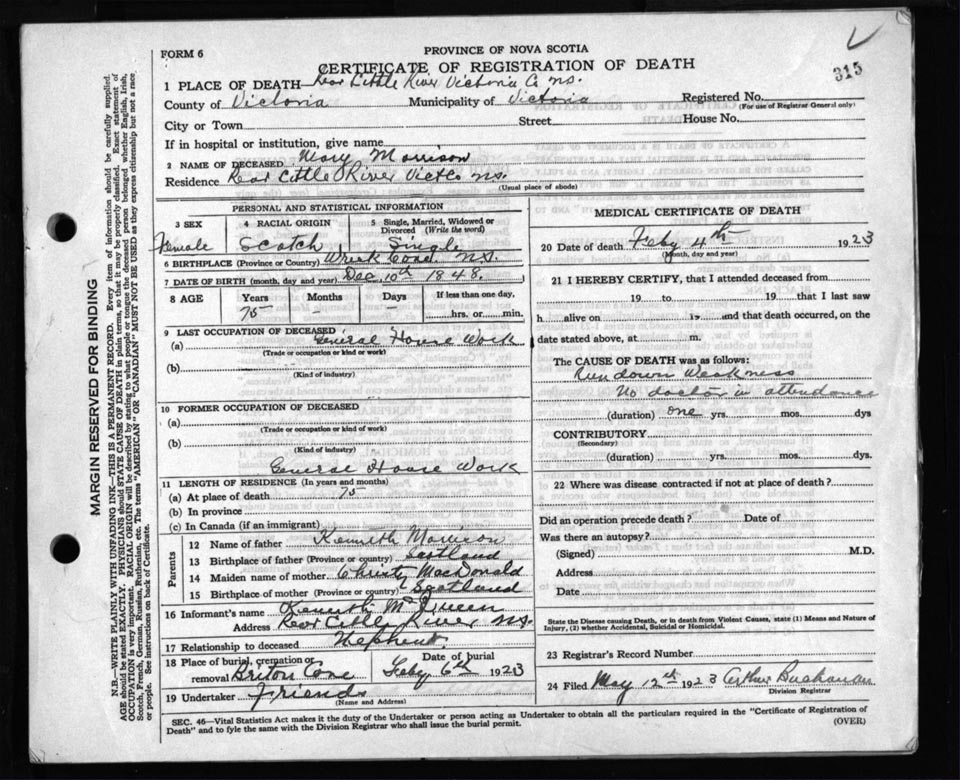 315
FORM 6
PROVINCE OF NOVA SCOTIA
CERTIFICATE OF REGISTRATION OF DEATH
1 PLACE OF DEATH—Rear Little River Victoria Co N.S.
County of Victoria Municipality of Victoria Registered No.
(For use of Registrar General only)
City or Town Street House No.
If in hospital or institution, give name
2 NAME OF DECEASED Mary Morrison
Residence Rear Little River Vict Co N.S.
(Usual place of abode)
PERSONAL AND STATISTICAL INFORMATION
3 SEX 4 RACIAL ORIGIN 5 Single, Married, Widowed or Divorced (Write the word)
Female Scotch Single
6 BIRTHPLACE (Province or Country) Wreck Cove N.S.
7 DATE OF BIRTH (month, day and year) Dec. 10th 1848.
8 AGE Years Months Days If less than one day,
75 – – hrs. or min.
9 LAST OCCUPATION OF DECEASED
(a) General House Work
(Trade or occupation or kind of work)
(b)
(Kind of industry)
10 FORMER OCCUPATION OF DECEASED
(a)
(Trade or occupation or kind of work)
(b)
(Kind of industry)
General House Work
11 LENGTH OF RESIDENCE (In years and months)
(a) At place of death 75
(b) In province
(c) In Canada (if an immigrant)
Parents
12 Name of father Kenneth Morrison
13 Birthplace of father (Province or country) Scotland
14 Maiden name of mother Christy MacDonald
15 Birthplace of mother (Province or country) Scotland
16 Informant's name Kenneth McQueen
Address Rear Little River N.S.
17 Relationship to deceased Nephew
18 Place of burial, cremation or removal Briton Cove Date of burial Feby 6th 1923
19 Undertaker Friends
(Name and Address)
MEDICAL CERTIFICATE OF DEATH
20 Date of death Feby 4th 1923
(Month, day and year)
21 I HEREBY CERTIFY, that I attended deceased from
19 to 19 that I last saw
h alive on 19 and that death occurred, on the
date stated above, at m.
The CAUSE OF DEATH was as follows:
Run down Weakness
No doctor in attendance
(duration) one yrs. mos. dys
CONTRIBUTORY
(Secondary)
(duration) yrs. mos. dys.
22 Where was disease contracted if not at place of death?
Did an operation precede death? Date of
Was there an autopsy?
(Signed) M.D.
Address
Date
State the Disease causing Death, or in death from Violent Causes, state (1) Means and Nature of Injury, (2) whether Accidental, Suicidal or Homicidal.
23 Registrar's Record Number
24 Filed May 12th 1923 Arthur Buchanan
Division Registrar
SEC. 46—Vital Statistics Act makes it the duty of the Undertaker or person acting as Undertaker to obtain all the particulars required in the "Certificate of Registration of
Death" and to fyle the same with the Division Registrar who shall issue the burial permit.
(OVER)
MARGIN RESERVED FOR BINDING
N.B.—WRITE PLAINLY WITH UNFADING INK—THIS IS A PERMANENT RECORD. Every item of information should be carefully supplied.
AGE should be stated EXACTLY. PHYSICIANS should STATE CAUSE OF DEATH in plain terms, so that it may be properly classified. Exact statement of
OCCUPATION is very important. RACIAL ORIGIN will be described by stating to what people or tongue the deceased person belonged, whether English, Irish,
Scotch, French, German, Russian, Ruthenian, etc. The terms "AMERICAN" OR "CANADIAN" MUST NOT BE USED as they express citizenship but not a race
or people. See instructions on back of Certificate.